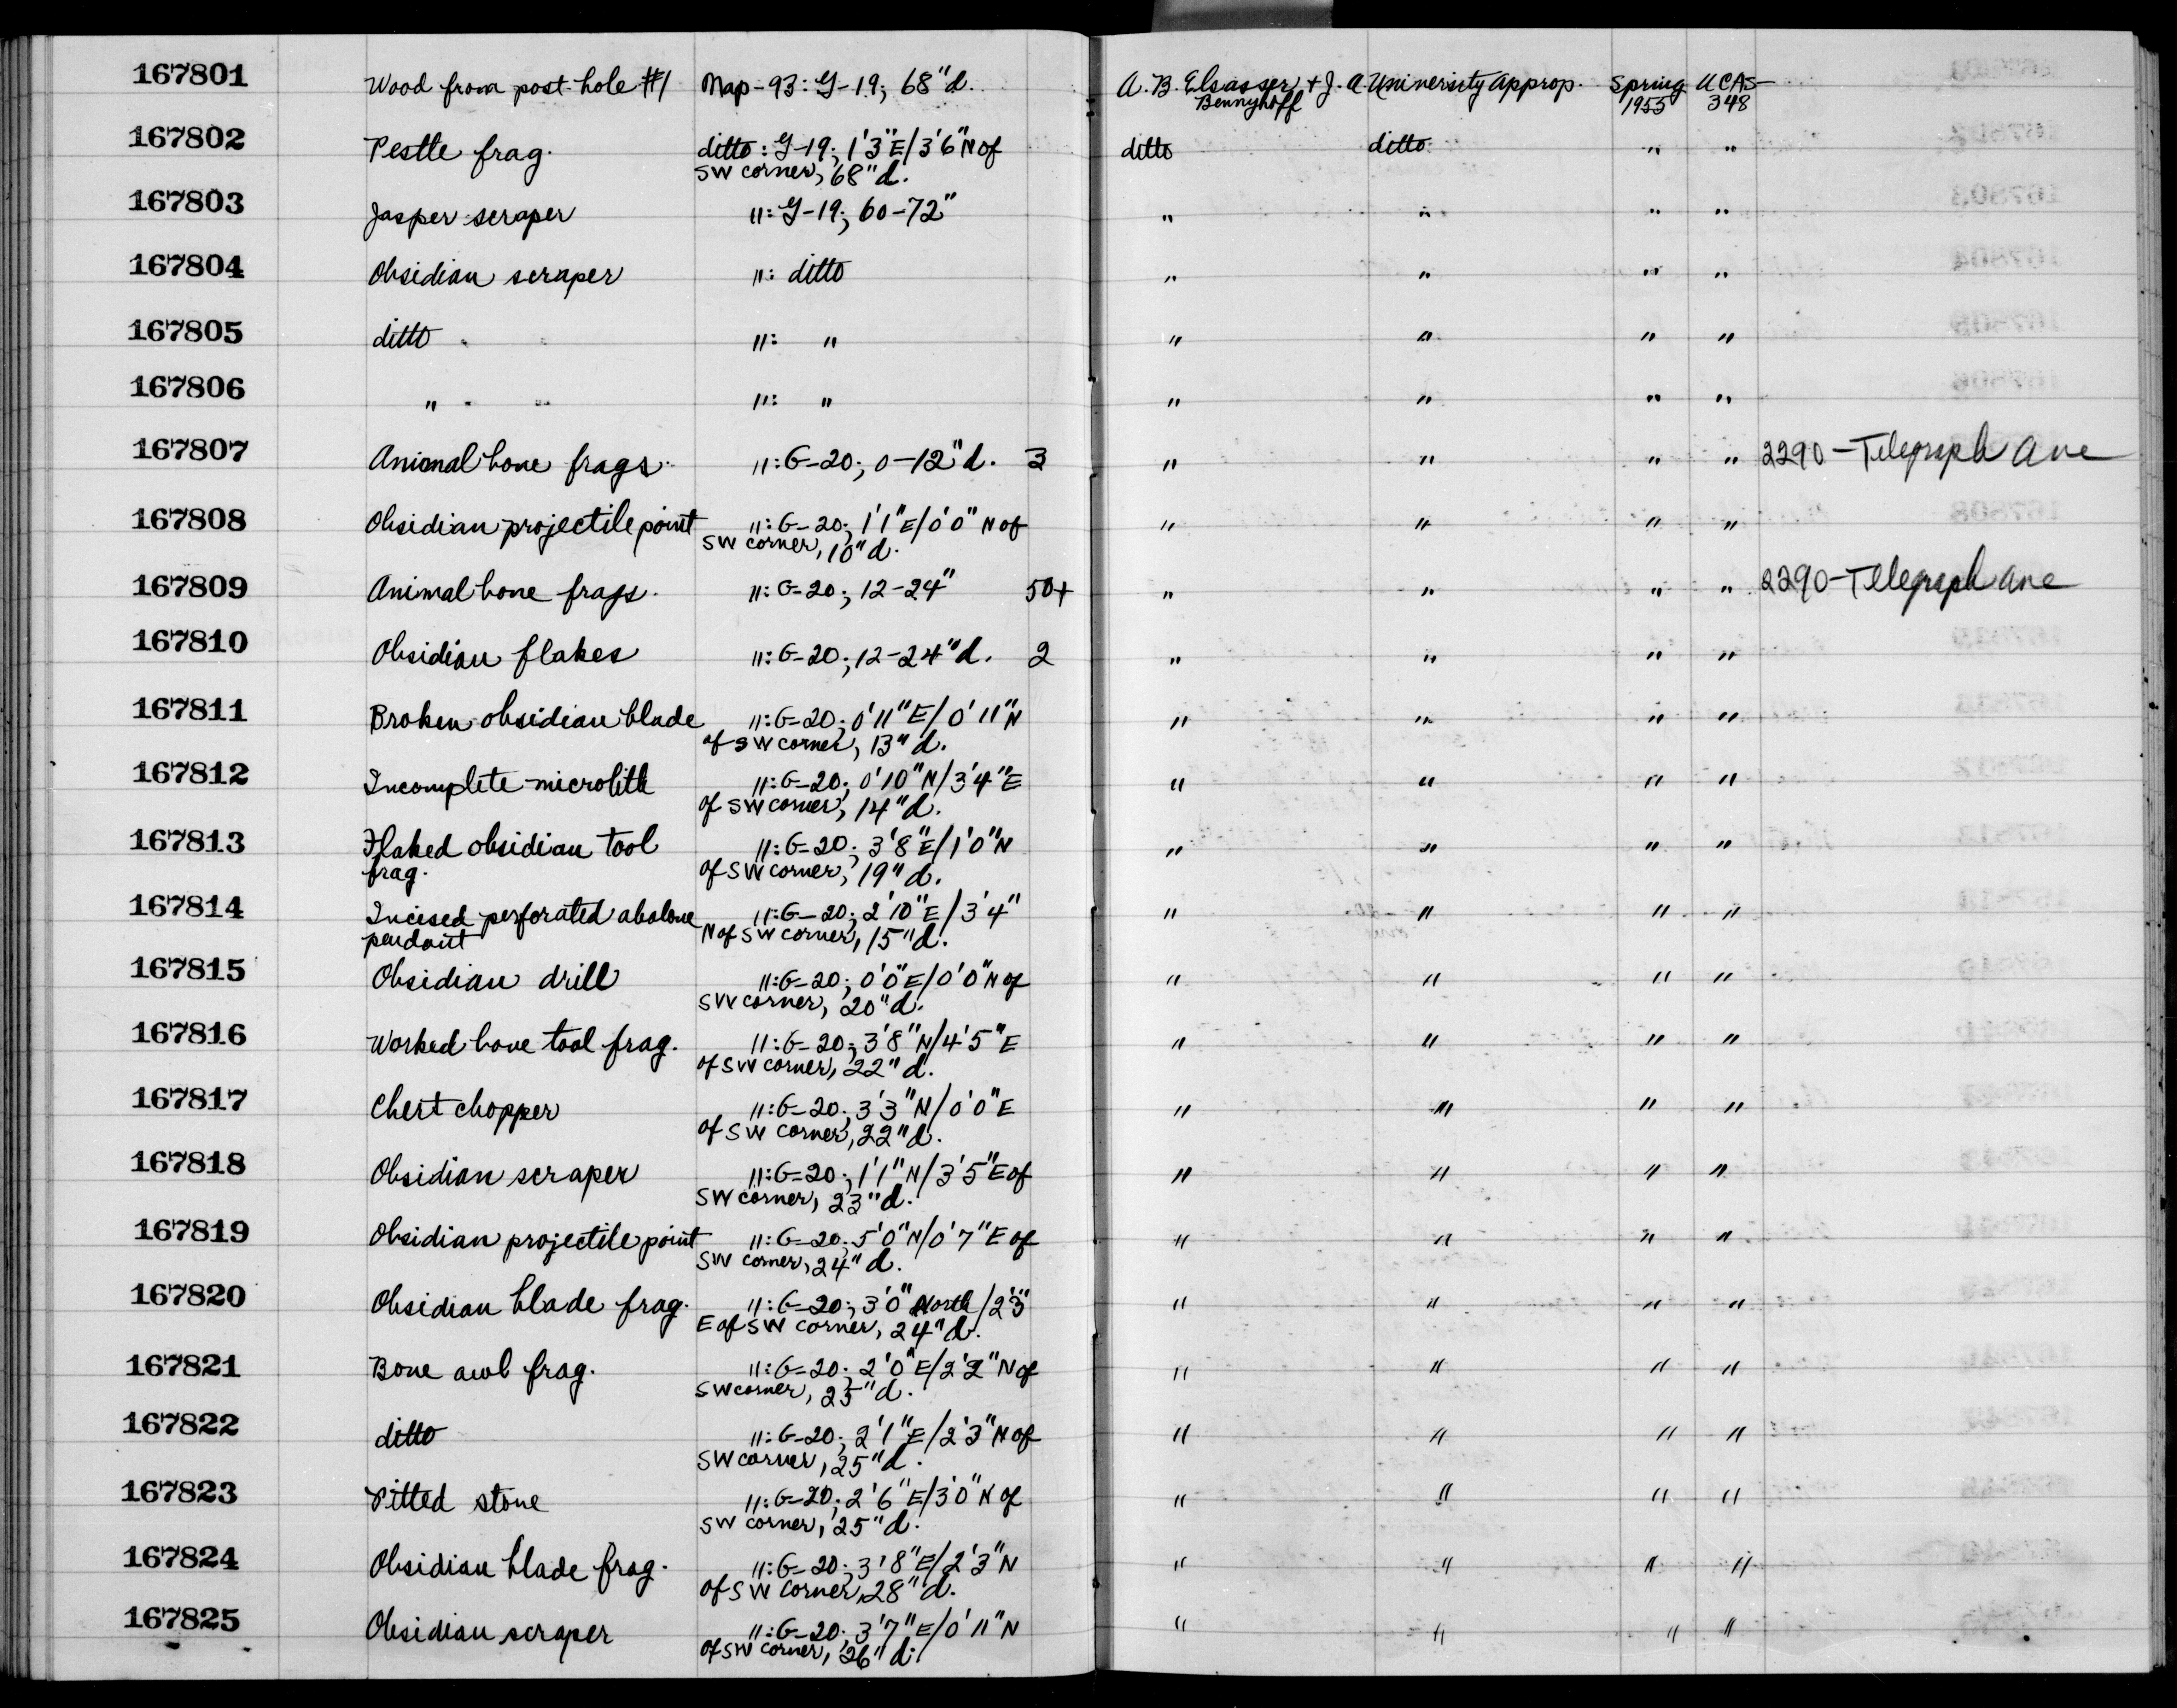 167801 Wood from post hole #1 Nap-93: G-19; 68"d. A. B. Elsasser + J. A. University approp. Spring UCAS-
Bennyhoff 1955 348
167802 Pestle frag. ditto: G-19; 1'3"E/3'6"N of ditto ditto " "
SW corner, 68"d.
167803 Jasper scraper ": G-19; 60-72" " " " "
167804 Obsidian scraper ": ditto " " " "
167805 ditto ": " " " " "
167806 " ": " " " " "
167807 Animal bone frags. ": G-20; 0-12"d. 3 " " " " 2290-Telegraph Ave
167808 Obsidian projectile point ": G-20; 1'1"E/0'0" N of " " " "
SW corner, 10"d.
167809 Animal bone frags. ": G-20; 12-24" 50+ " " " " 2290-Telegraph Ave
167810 Obsidian flakes ": G-20; 12-24"d. 2 " " " "
167811 Broken obsidian blade ": G-20; 0'11"E/0'11"N " " " "
of SW corner, 13"d.
167812 Incomplete microlith ": G-20; 0'10"N/3'4"E " " " "
of SW corner, 14"d.
167813 Flaked obsidian tool ": G-20; 3'8"E/1'0"N " " " "
frag. of SW corner, 19"d.
167814 Incised perforated abalone ": G-20; 2'10"E/3'4" " " " "
pendant N of SW corner, 15"d.
167815 Obsidian drill ": G-20; 0'0"E/0'0"N of " " " "
SW corner, 20"d.
167816 Worked bone tool frag. ": G-20; 3'8"N/4'5"E " " " "
of SW corner, 22"d.
167817 Chert chopper ": G-20; 3'3"N/0'0"E " " " "
of SW corner, 22"d.
167818 Obsidian scraper ": G-20; 1'1"N/3'5"E of " " " "
SW corner, 23"d.
167819 Obsidian projectile point ": G-20; 5'0"N/0'7"E of " " " "
SW corner, 24"d.
167820 Obsidian blade frag. ": G-20; 3'0" North/2'3" " " " "
E of SW corner, 24"d.
167821 Bone awl frag. ": G-20; 2'0"E/2'2"N of " " " "
SW corner, 25"d.
167822 ditto ": G-20; 2'1"E/2'3"N of " " " "
SW corner, 25"d.
167823 Pitted stone ": G-20; 2'6"E/3'0"N of " " " "
SW corner, 25"d.
167824 Obsidian blade frag. ": G-20; 3'8"E/2'3"N " " " "
of SW corner, 28"d.
167825 Obsidian scraper ": G-20; 3'7"E/0'11"N " " " "
of SW corner, 26"d.